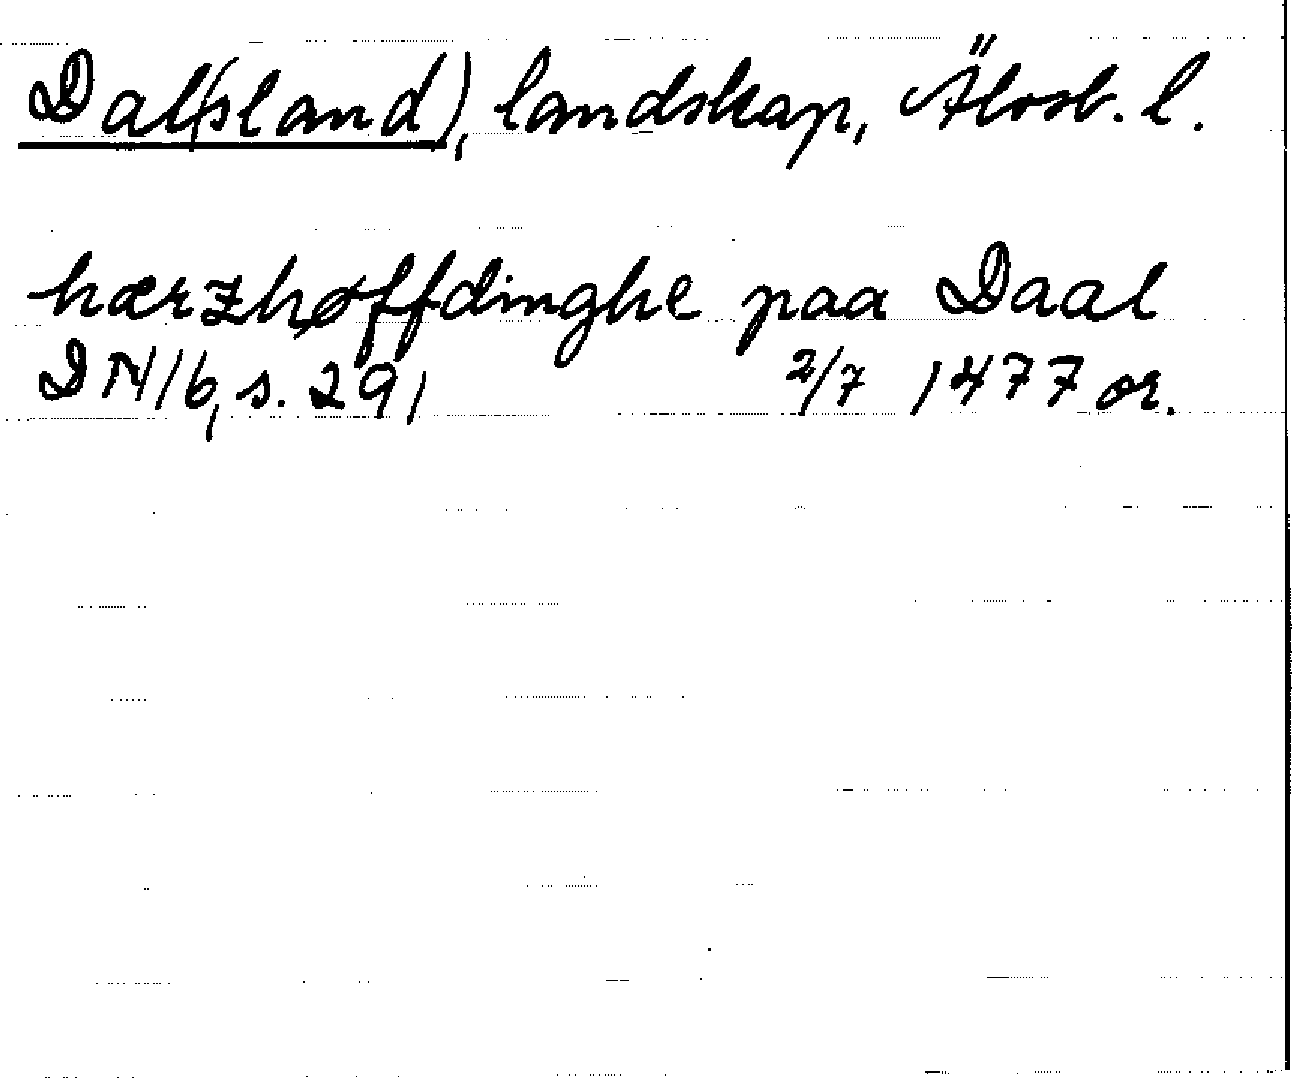 Dal(sland), landskap, Älvsb. l.
hærzhøffdinghe paa Daal
DN 16, s. 291 2/7 1477 or.